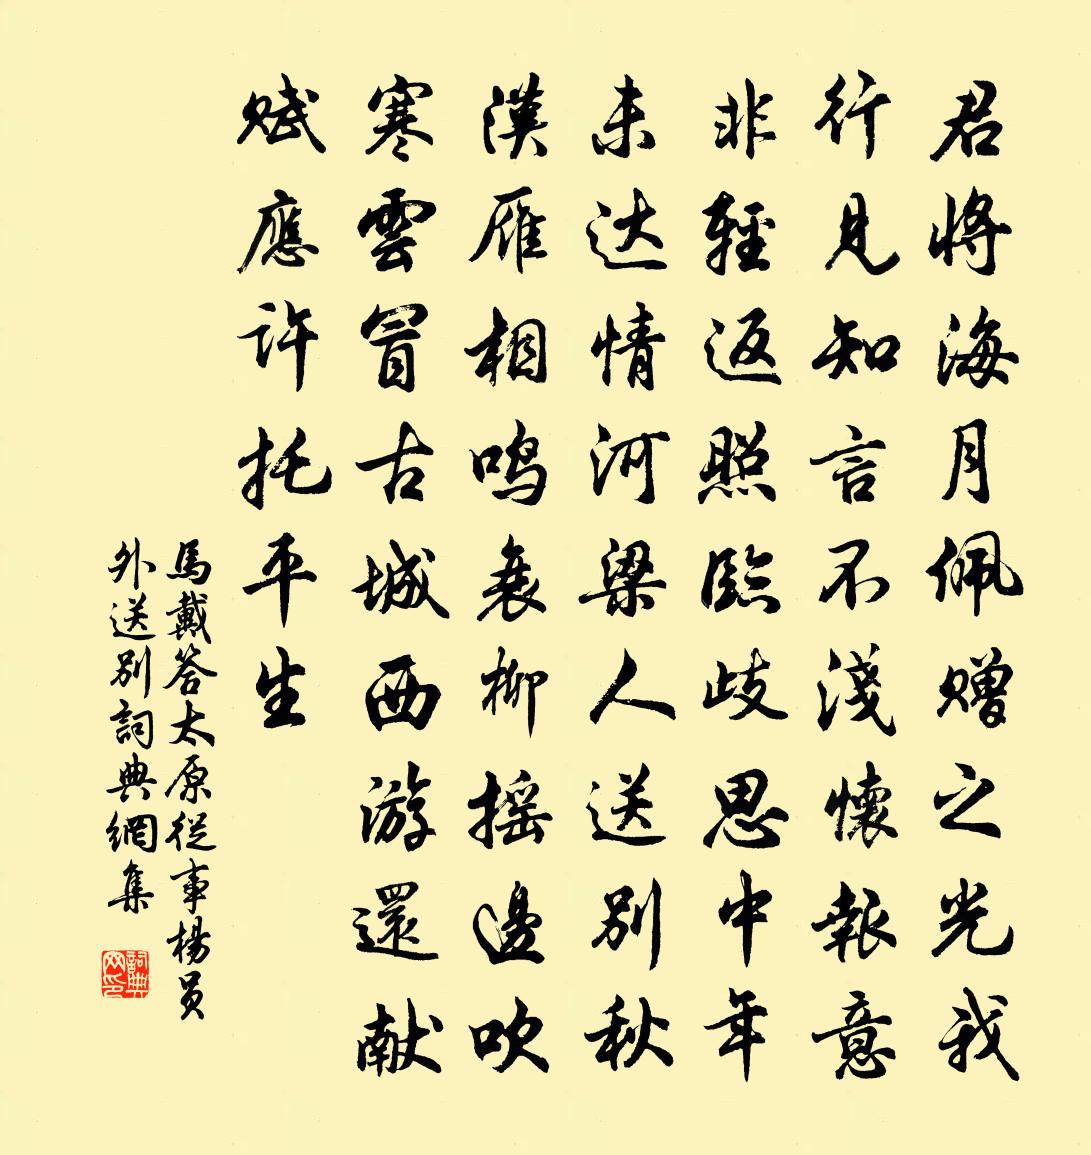 君將海月佩赠之光我
行見知言不淺懷報意
非輕返照臨歧思中年
未达情河梁人送别秋
漢雁相鳴衰柳摇邊吹
寒雲冒古城西游還献
赋應许托平生
馬戴答太原從事楊員
外送别詞典網集
詞典
网印